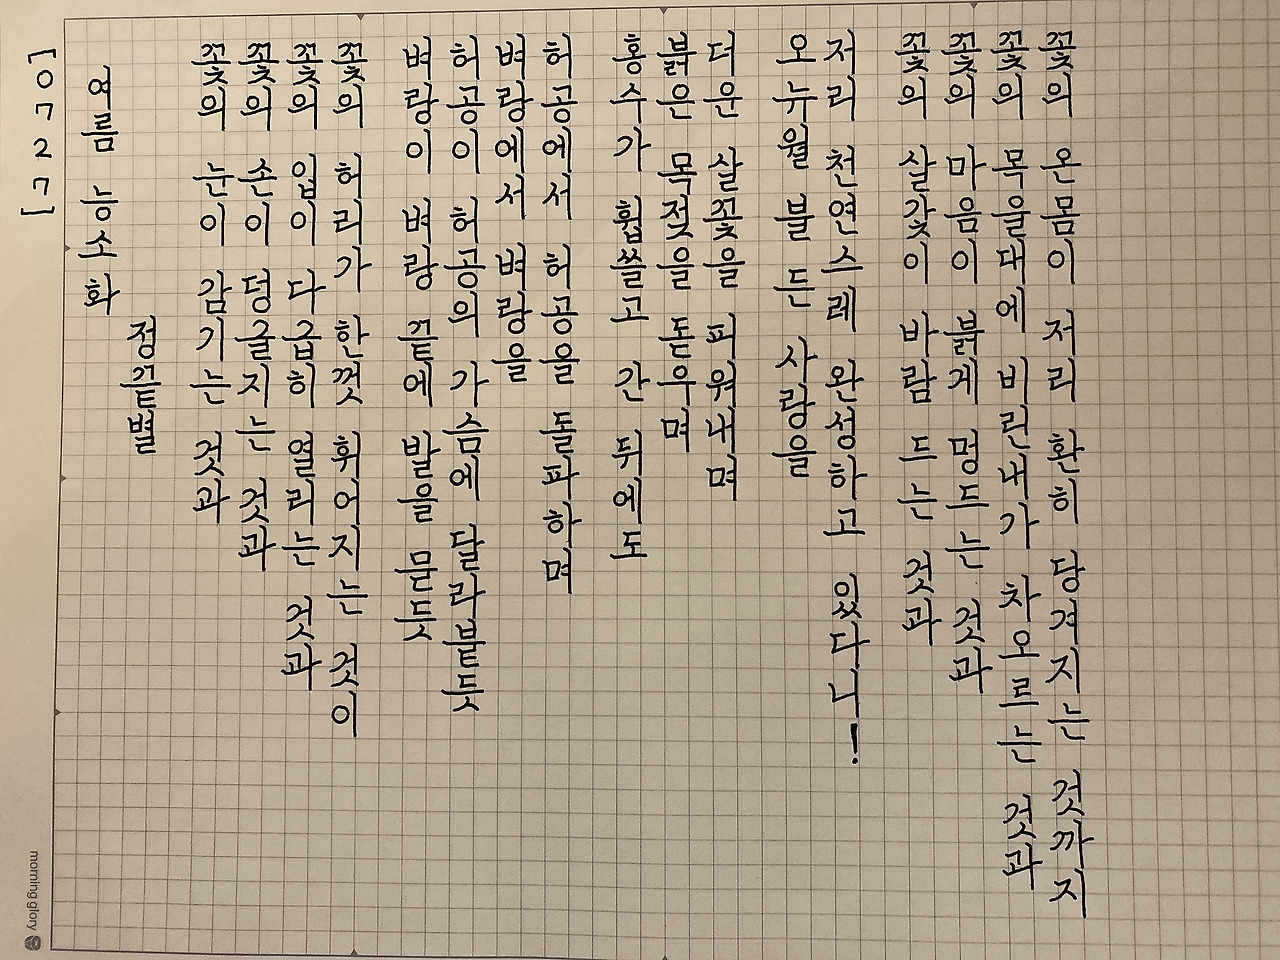 [0727]
여름 능소화
정끝별
꽃의 눈이 감기는 것과
꽃의 손이 덩굴지는 것과
꽃의 입이 다급히 열리는 것과
꽃의 허리가 한껏 휘어지는 것이
벼랑이 벼랑 끝에 발을 묻듯
허공이 허공의 가슴에 달라붙듯
벼랑에서 벼랑을
허공에서 허공을 돌파하며
홍수가 휩쓸고 간 뒤에도
붉은 목젖을 돋우며
더운 살꽃을 피워내며
오뉴월 불 든 사랑을
저리 천연스레 완성하고 있다니!
꽃의 살갗이 바람 드는 것과
꽃의 마음이 붉게 멍드는 것과
꽃의 목울대에 비린내가 차오르는 것과
꽃의 온몸이 저리 환히 당겨지는 것까지
morning glory